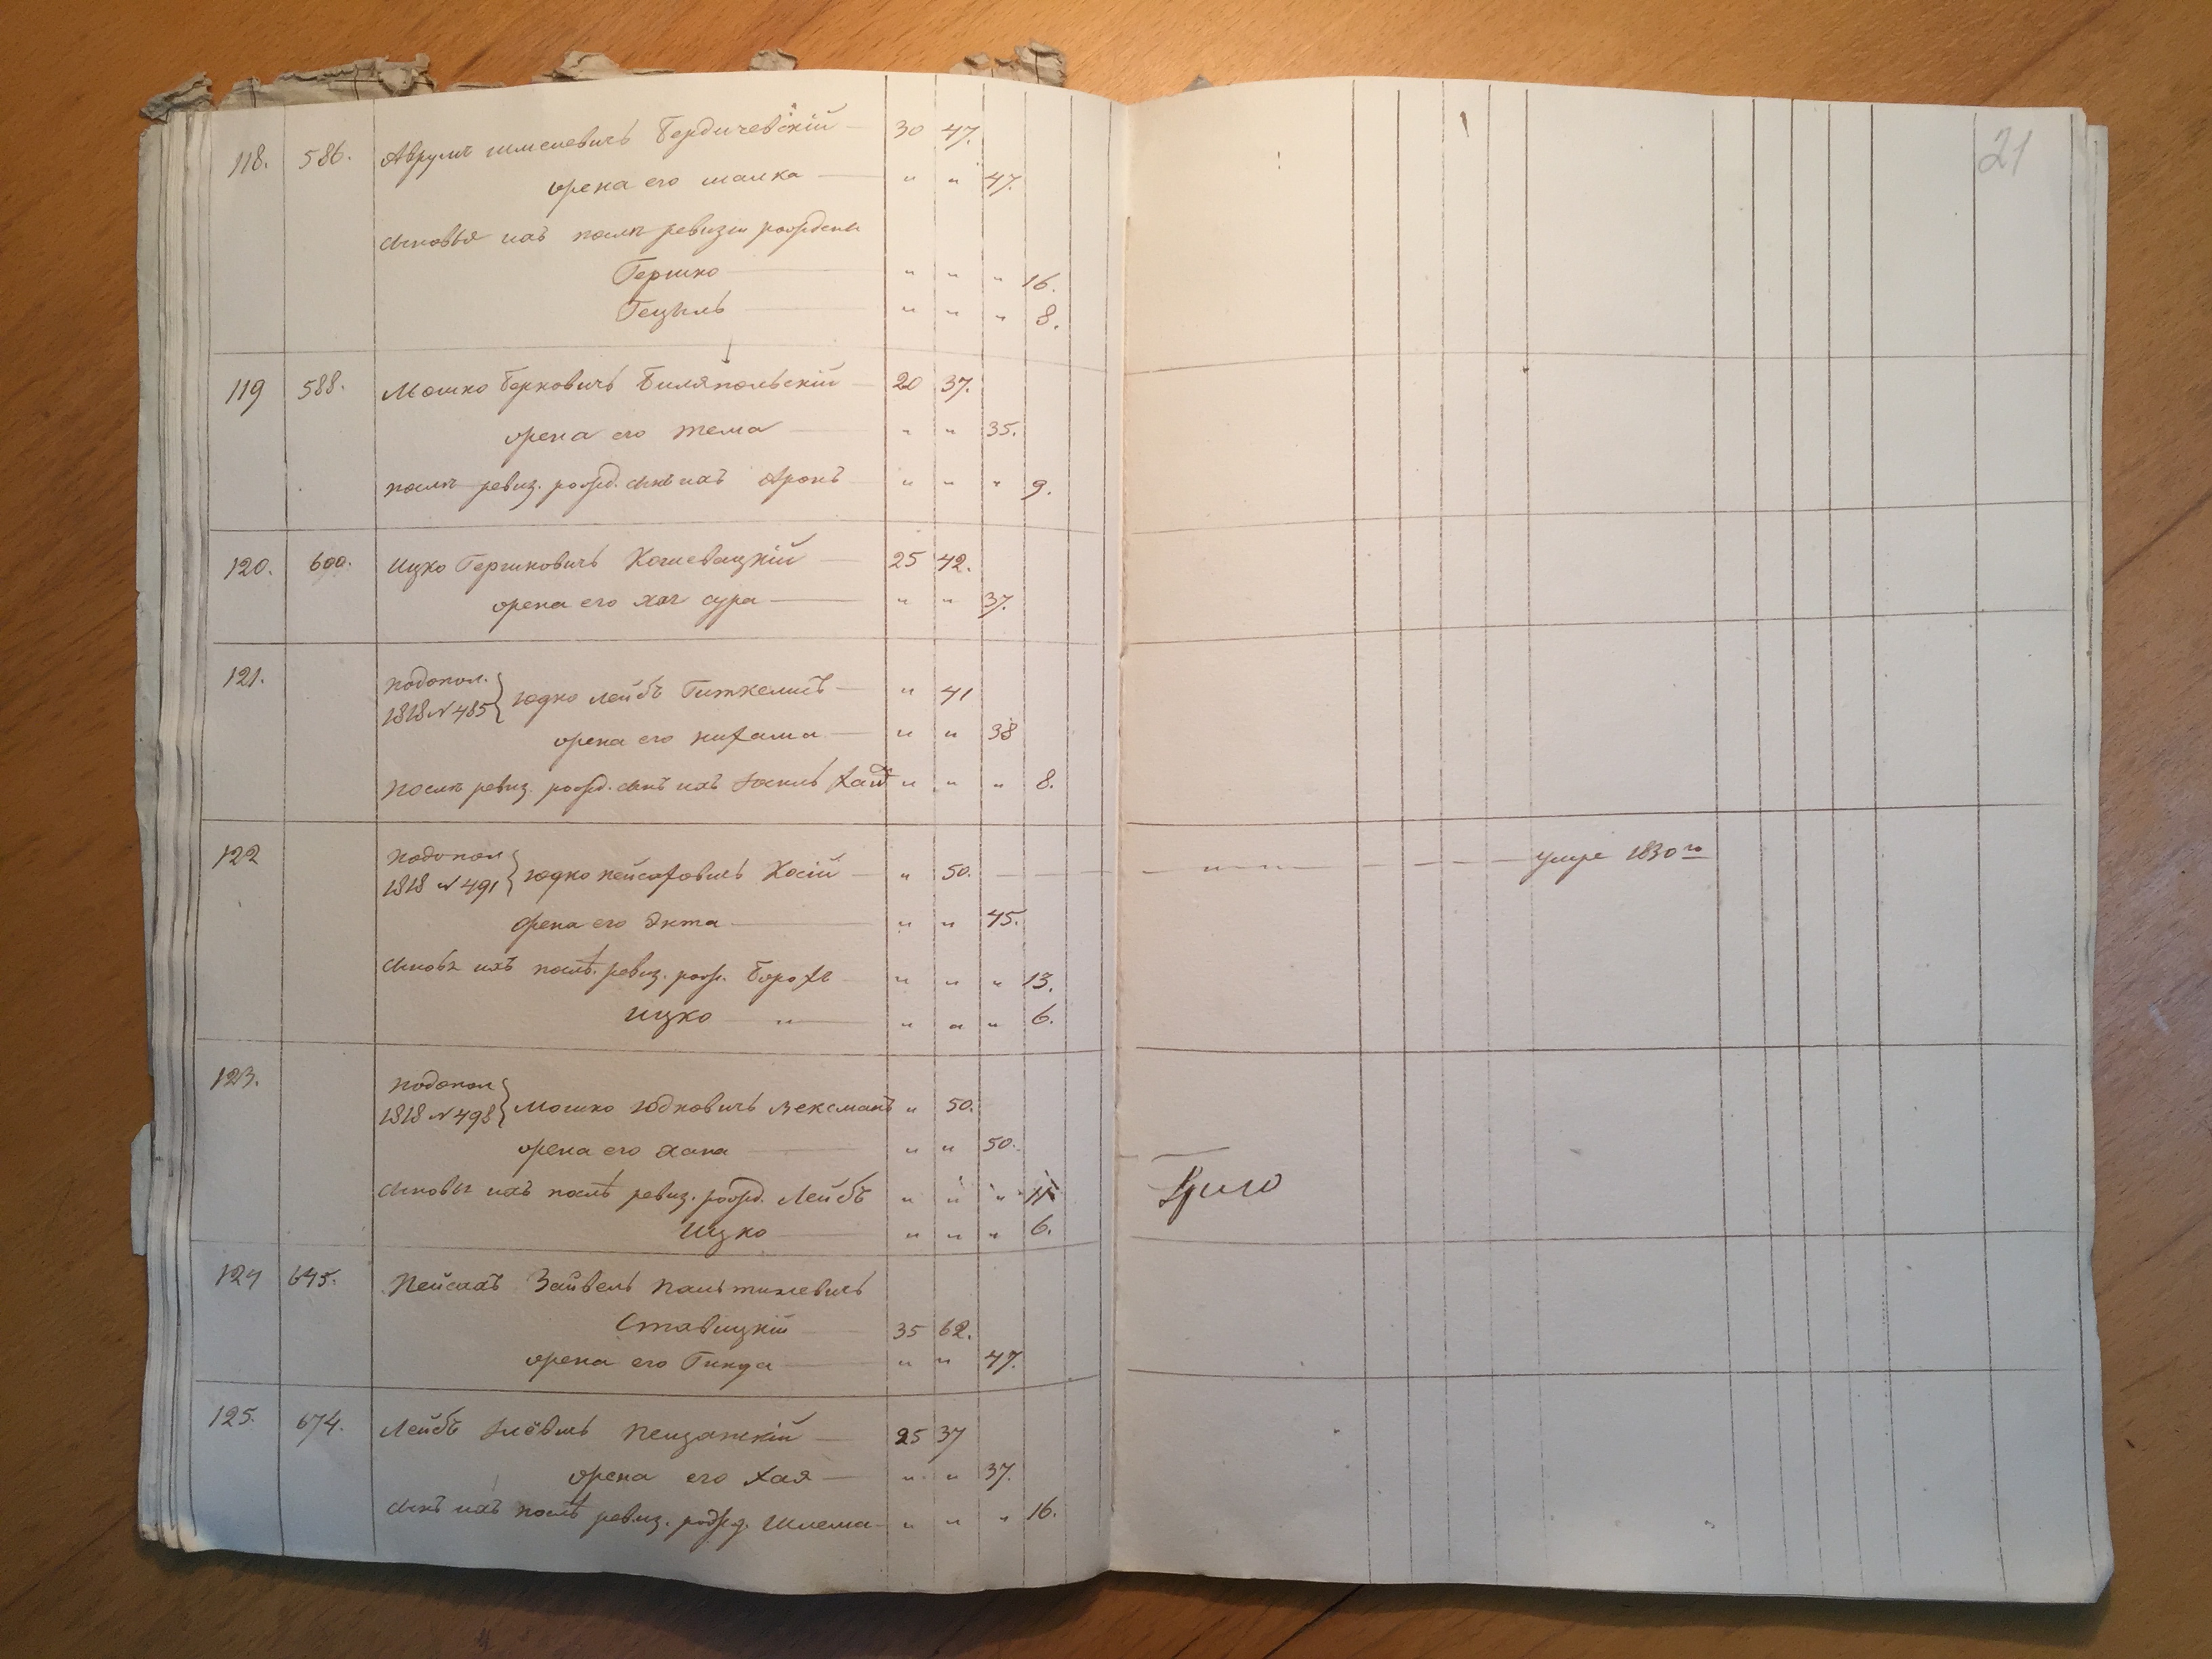 21
118. 586. Аврумъ Шмулевичъ Бердичевскій — 30 47.
жена его Малка — " " 47.
сыновья ихъ послѣ ревизіи рожденны
Гершко — " " " 16.
Гецыль — " " " 8.
119 588. Мошко Берковичъ Биляпольскій — 20 37.
жена его Тема — " " 35.
послѣ ревиз. рожд. сынъ ихъ Аронъ " " " 9.
120. 600. Ицко Гершковичъ Кошевацкій — 25 42.
жена его Хая Сура — " " 37.
121. подопол.
1818 № 485 } Юдко Лейбъ — " 41
жена его — " " 38
послѣ ревиз. рожд. сынъ ихъ " " " 8.
122 подопол
1818 № 491 } Юдко Пейсаховичъ — " 50. — умре 1830 го
жена его Энта — " " 45.
сыновя ихъ послѣ. ревиз. рож. Борохъ " " " 13.
Ицко — " — " " " 6.
123. подопол
1818 № 498 } Мошко Юдковичъ Зексманъ " 50.
жена его Хана — " " 50.
сыновя ихъ послѣ ревиз. рожд. Лейбъ " " " 11
Ицко — " " " 6.
124 645. Пейсахъ Зайвель Пальтиелевичъ
Ставицкій — 35 62.
жена его Гинда — " " 47.
125. 674. Лейбъ — 25 37
жена его Хая — " " 37.
сынъ ихъ послѣ ревиз. рожд. Шлема — " " " 16.